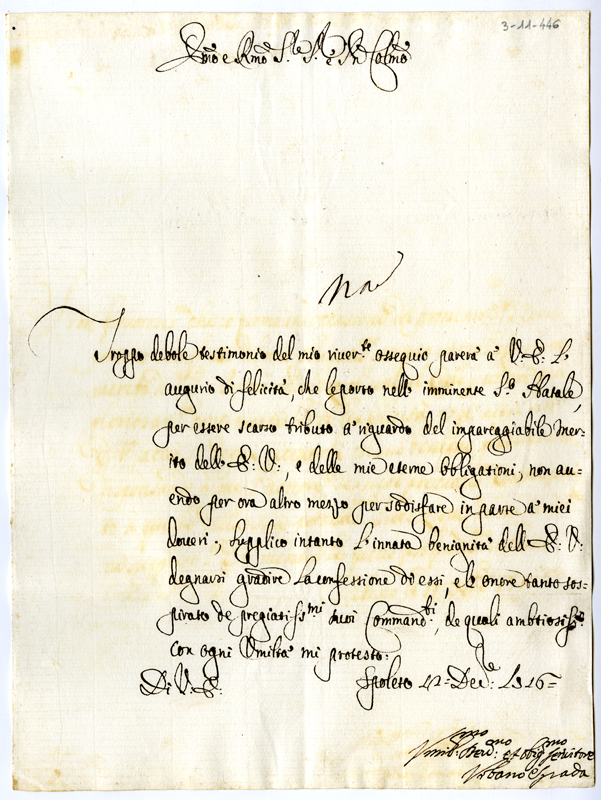 3-11-446
Emo e Rmo Sre Sr e Pn Colmo
Troppo debole testimonio del mio river.te ossequio parerà à V.E: L
augurio di felicità, che le porto nell imminente S.o Natale,
per essere scarso tributo a riguardo del impareggiabile mer=
ito dell E:V:, e delle mie eterne obligationi, non au=
endo per ora altro mezzo per sodisfare in parte a' miei
doueri; supplico intanto L innata benignità dell E:V:
degnarsi gradire la confessione di essi, e l onore tanto sos=
pirato de pregiatiss.mi suoi Command.ti, de quali ambitiosiss.o
con ogni Umiltà mi protesto.
Di V.E: Spoleto Dec.re
Umil.mo Ser.mo et Obl.mo seruitore
Urbano Spada